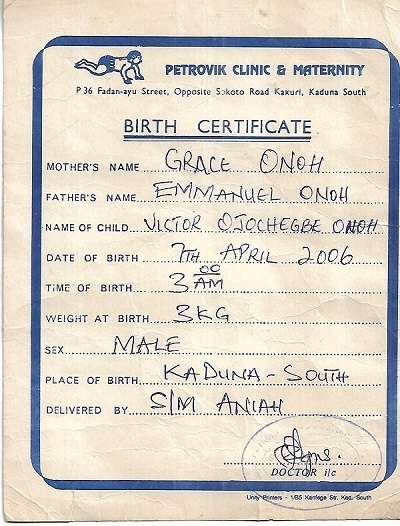 PETROVIK CLINIC & MATERNITY
P 36 Fadan-ayu Street, Opposite Sokoto Road Kakuri, Kaduna South
BIRTH CERTIFICATE
MOTHER'S NAME GRACE ONOH
FATHER'S NAME EMMANUEL ONOH
NAME OF CHILD VICTOR OJOCHEGBE ONOH
DATE OF BIRTH 7TH APRIL 2006
TIME OF BIRTH 3 00 AM
WEIGHT AT BIRTH 3KG
SEX MALE
PLACE OF BIRTH KADUNA - SOUTH
DELIVERED BY S/M ANIAH
DOCTOR i/c
Unity Printers - 1/B5 Kanfage Str. Kad. South